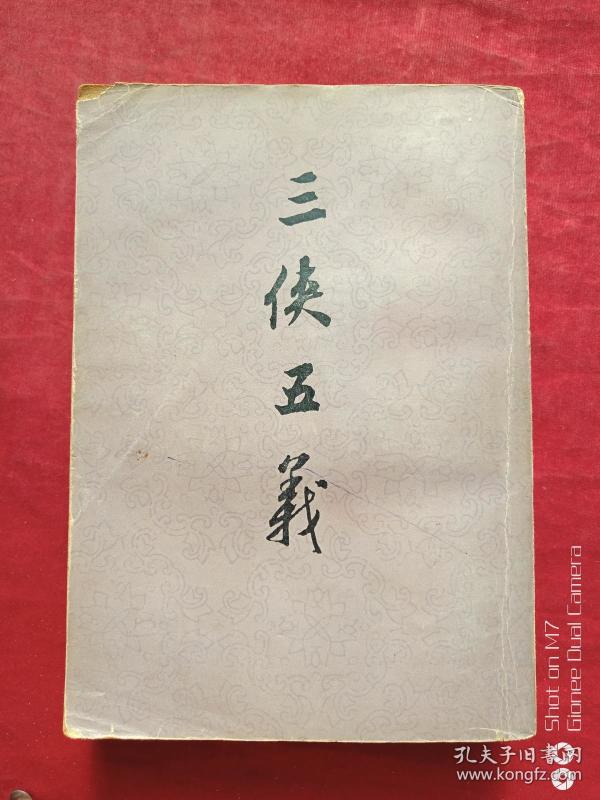 三俠五義
Shot on M7
Gionee Dual Camera
孔夫子旧书网
www.kongfz.com